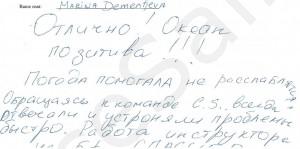 Ваше имя: Marina Dementieva
Отлично! Океан
позитива!!!
Погода помогала не расслабляться.
Обращаясь к команде C.S. всегда
отвечали и устроняли проблемы
быстро. Работа инструктора